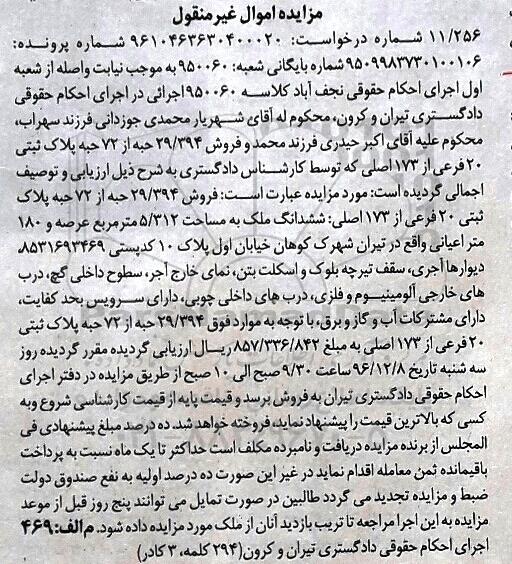 مزایده اموال غیرمنقول
۱۱/۲۵۶ شماره درخواست: ۹۶۱۰۴۶۳۶۳۰۴۰۰۰۲۰ شماره پرونده:
۹۵۰۹۹۸۳۷۳۰۱۰۰۱۰۶ شماره بایگانی شعبه: ۹۵۰۰۶۰ به موجب نیابت واصله از شعبه
اول اجرای احکام حقوقی نجف آباد کلاسه ۹۵۰۰۶۰ اجرائی در اجرای احکام حقوقی
دادگستری تیران و کرون، محکوم له آقای شهریار محمدی جوزدانی فرزند سهراب،
محکوم علیه آقای اکبر حیدری فرزند محمد و فروش ۲۹/۳۹۴ حبه از ۷۲ حبه پلاک ثبتی
۲۰ فرعی از ۱۷۳ اصلی که توسط کارشناس دادگستری به شرح ذیل ارزیابی و توصیف
اجمالی گردیده است: مورد مزایده عبارت است: فروش ۲۹/۳۹۴ حبه از ۷۲ حبه پلاک
ثبتی ۲۰ فرعی از ۱۷۳ اصلی: ششدانگ ملک به مساحت ۵/۳۱۲ مترمربع عرصه و ۱۸۰
متر اعیانی واقع در تیران شهرک کوهان خیابان اول پلاک ۱۰ کدپستی ۸۵۳۱۶۹۳۴۶۹،
دیوارها آجری، سقف تیرچه بلوک و اسکلت بتن، نمای خارج آجر، سطوح داخلی گچ، درب
های خارجی آلومینیوم و فلزی، درب های داخلی چوبی، دارای سرویس بحد کفایت،
دارای مشترکات آب و گاز و برق، با توجه به موارد فوق ۲۹/۳۹۴ حبه از ۷۲ حبه پلاک ثبتی
۲۰ فرعی از ۱۷۳ اصلی به مبلغ ۸۵۷/۳۳۶/۸۴۲ ریال ارزیابی گردیده مقرر گردیده روز
سه شنبه تاریخ ۹۶/۱۲/۸ ساعت ۹/۳۰ صبح الی ۱۰ صبح از طریق مزایده در دفتر اجرای
احکام حقوقی دادگستری تیران به فروش برسد و قیمت پایه از قیمت کارشناسی شروع و به
کسی که بالاترین قیمت را پیشنهاد نماید، فروخته خواهد شد. ده درصد مبلغ پیشنهادی فی
المجلس از برنده مزایده دریافت و نامبرده مکلف است حداکثر تا یک ماه نسبت به پرداخت
باقیمانده ثمن معامله اقدام نماید در غیر این صورت ده درصد اولیه به نفع صندوق دولت
ضبط و مزایده تجدید می گردد طالبین در صورت تمایل می توانند پنج روز قبل از موعد
مزایده به این اجرا مراجعه تا تریب بازدید آنان از ملک مورد مزایده داده شود. م الف: ۴۶۹
اجرای احکام حقوقی دادگستری تیران و کرون (۲۹۴ کلمه، ۳ کادر)